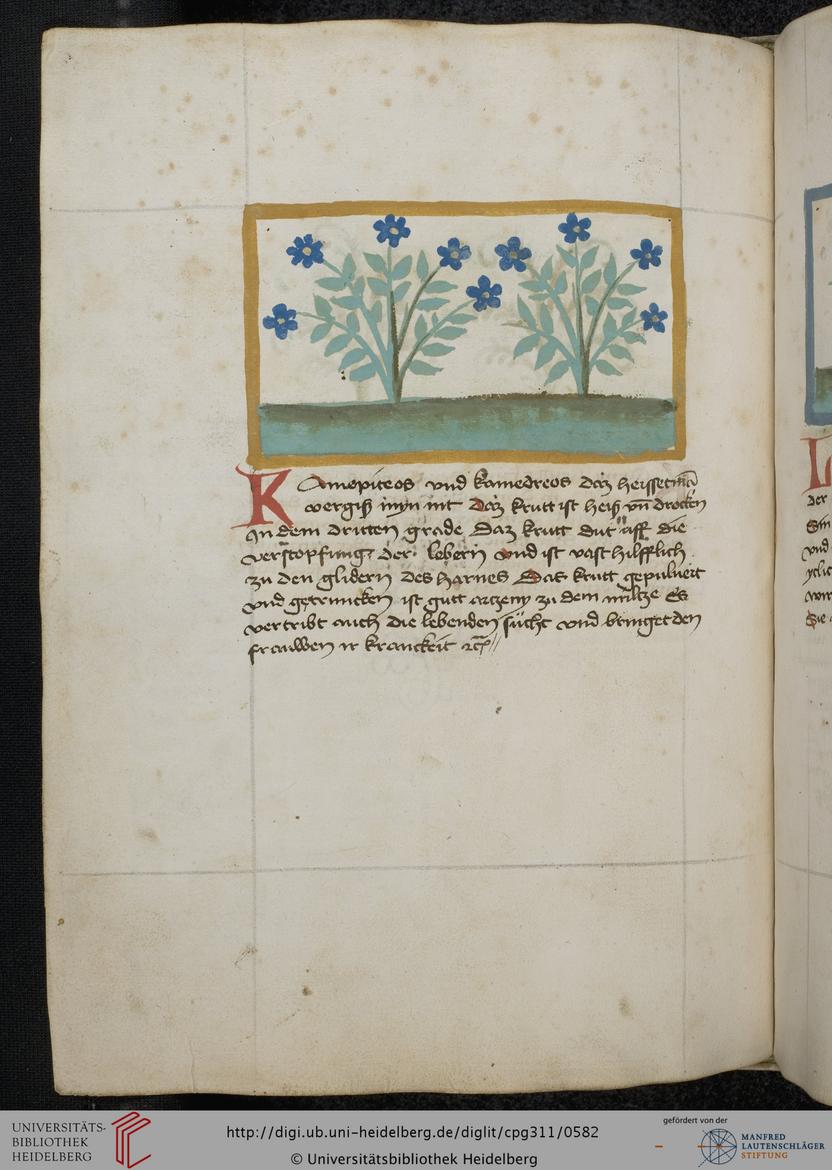 KAmepiteos vnd kamedreos daz heisset mā
vergiß myn nit Daz krutt ist heiß vn̄ drocken
an dem dritten grade Daz krutt dut aͧff die
verstopfung der lebern vnd ist vast hilfflich
zu den glidern des harnes Das krutt gepuluert
vnd getruncken ist gutt arczeny zu dem miltze Es
vertribt auch die lebenden sücht vnd bringet den
frauwen ir kranckeit ⁊c̄
der
Sin
vnd
Sie
UNIVERSITÄTS-
BIBLIOTHEK
HEIDELBERG
http://digi.ub.uni-heidelberg.de/diglit/cpg311/0582
© Universitätsbibliothek Heidelberg
gefördert von der
MANFRED
LAUTENSCHLÄGER
STIFTUNG